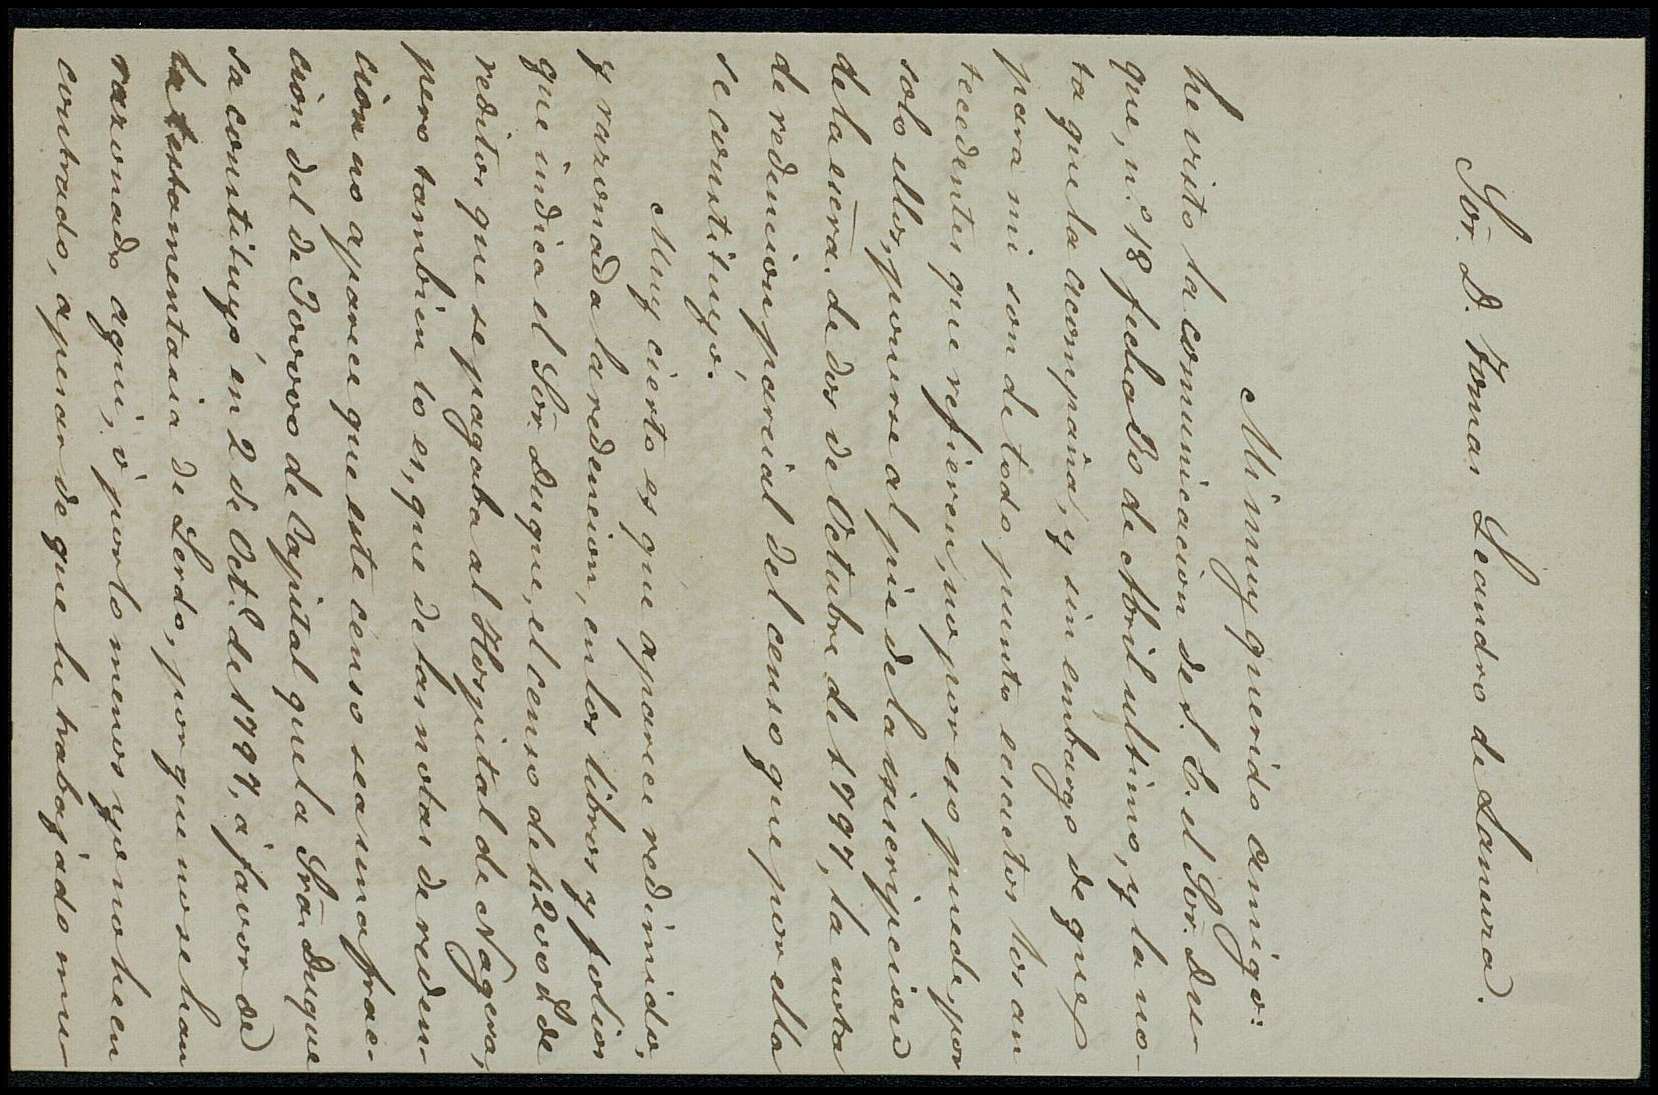 Sor. D. Tomas Leandro de Lamura.
Mi muy querido amigo:
he visto la comunicacion de S. E. el Sor. Du-
que, n.º 18 fecha 30 de Abril ultimo, y la no-
ta que la acompaña, y sin embargo de que
para mi son de todo punto esactos los an
tecedentes que refieren, no por eso puede, por
solo ellos, ponerse al pie de la inscripcion
de la escra. de dos de Octubre de 1797, la nota
de redencion parcial del censo que por ella
se constituyó.
Muy cierto es que aparece redimido,
y razonada la redencion, en los libros y folios
que indica el Sor. Duque, el censo de 1200 d.s de
reditos que se pagaba al Hospital de Nagera,
pero tambien lo es, que de las notas de reden-
cion no aparece que este censo sea una frac-
cion del de Povovo de Capital que la Sra. Duque
sa constituyó en 2 de Oct.e de 1797, a favor de
la testamentaria de Lerdo, porque no se han
razonado aqui, ó por lo menos yo no he en
contrado, apesar de que he trabajado mu-